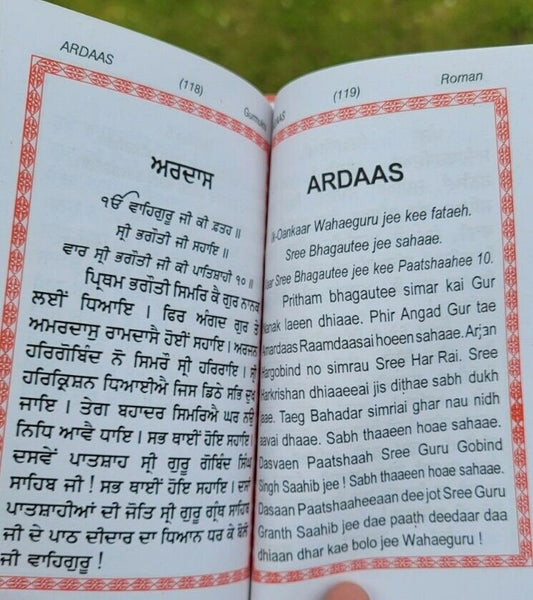 ARDAAS
(118)
ਅਰਦਾਸ
ੴ ਵਾਹਿਗੁਰੂ ਜੀ ਕੀ ਫ਼ਤਹ ॥
ਸ੍ਰੀ ਭਗੌਤੀ ਜੀ ਸਹਾਇ ॥
ਵਾਰ ਸ੍ਰੀ ਭਗੌਤੀ ਜੀ ਕੀ ਪਾਤਸ਼ਾਹੀ ੧੦ ॥
ਪ੍ਰਿਥਮ ਭਗੌਤੀ ਸਿਮਰਿ ਕੈ ਗੁਰ ਨਾਨਕ
ਲਈਂ ਧਿਆਇ । ਫਿਰ ਅੰਗਦ ਗੁਰ ਤੇ
ਅਮਰਦਾਸੁ ਰਾਮਦਾਸੈ ਹੋਈਂ ਸਹਾਇ। ਅਰਜਨ
ਹਰਿਗੋਬਿੰਦ ਨੋ ਸਿਮਰੌ ਸ੍ਰੀ ਹਰਿਰਾਇ। ਸ੍ਰੀ
ਹਰਿਕ੍ਰਿਸ਼ਨ ਧਿਆਈਐ ਜਿਸ ਡਿਠੇ ਸਭਿ ਦੁਖ
ਜਾਇ । ਤੇਗ ਬਹਾਦਰ ਸਿਮਰਿਐ ਘਰ ਨਉ
ਨਿਧਿ ਆਵੈ ਧਾਇ। ਸਭ ਥਾਈਂ ਹੋਇ ਸਹਾਇ।
ਦਸਵੇਂ ਪਾਤਸ਼ਾਹ ਸ੍ਰੀ ਗੁਰੂ ਗੋਬਿੰਦ ਸਿੰਘ
ਸਾਹਿਬ ਜੀ ! ਸਭ ਥਾਈਂ ਹੋਇ ਸਹਾਇ।
ਪਾਤਸ਼ਾਹੀਆਂ ਦੀ ਜੋਤਿ ਸ੍ਰੀ ਗੁਰੂ ਗ੍ਰੰਥ ਸਾਹਿਬ
ਜੀ ਦੇ ਪਾਠ ਦੀਦਾਰ ਦਾ ਧਿਆਨ ਧਰ ਕੇ ਬੋਲੋ
ਜੀ ਵਾਹਿਗੁਰੂ !
(119)
Roman
ARDAAS
Ik-Oankaar Wahaeguru jee kee fataeh.
Sree Bhagautee jee sahaae.
Sree Bhagautee jee kee Paatshaahee 10.
Pritham bhagautee simar kai Gur
Nanak laeen dhiaae. Phir Angad Gur tae
Amardaas Raamdaasai hoeen sahaae. Arjan
Hargobind no simrau Sree Har Rai. Sree
Harkrishan dhiaaeeai jis dithae sabh dukh
jaae. Taeg Bahadar simriai ghar nau nidh
aavai dhaae. Sabh thaaeen hoae sahaae.
Dasvaen Paatshaah Sree Guru Gobind
Singh Saahib jee ! Sabh thaaeen hoae sahaae.
Dasaan Paatshaaheeaan dee jot Sree Guru
Granth Saahib jee dae paath deedaar daa
dhiaan dhar kae bolo jee Wahaeguru !